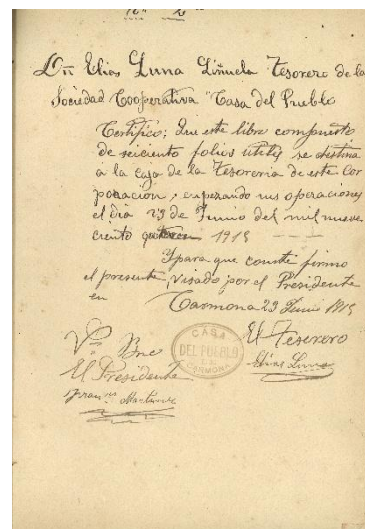 Dn Elias Luna Liñuela Tesorero de la
Sociedad Cooperativa "Casa del Pueblo
Certifico; Que este libro compuesto
de seiciento folios utiles se destina
a la caja de la Tesoreria de este Cor
poracion, enpezando sus operaciones
el dia 23 de Junio del mil nueve
ciento 1915
Y para que conste firmo
el presente, visado por el Presidente
en Carmona 23 Junio 1915
Vto Bno
El Presidente
Franco Martinez
CASA
DEL PUEBLO
CARMONA
El Tesorero
Elias Luna